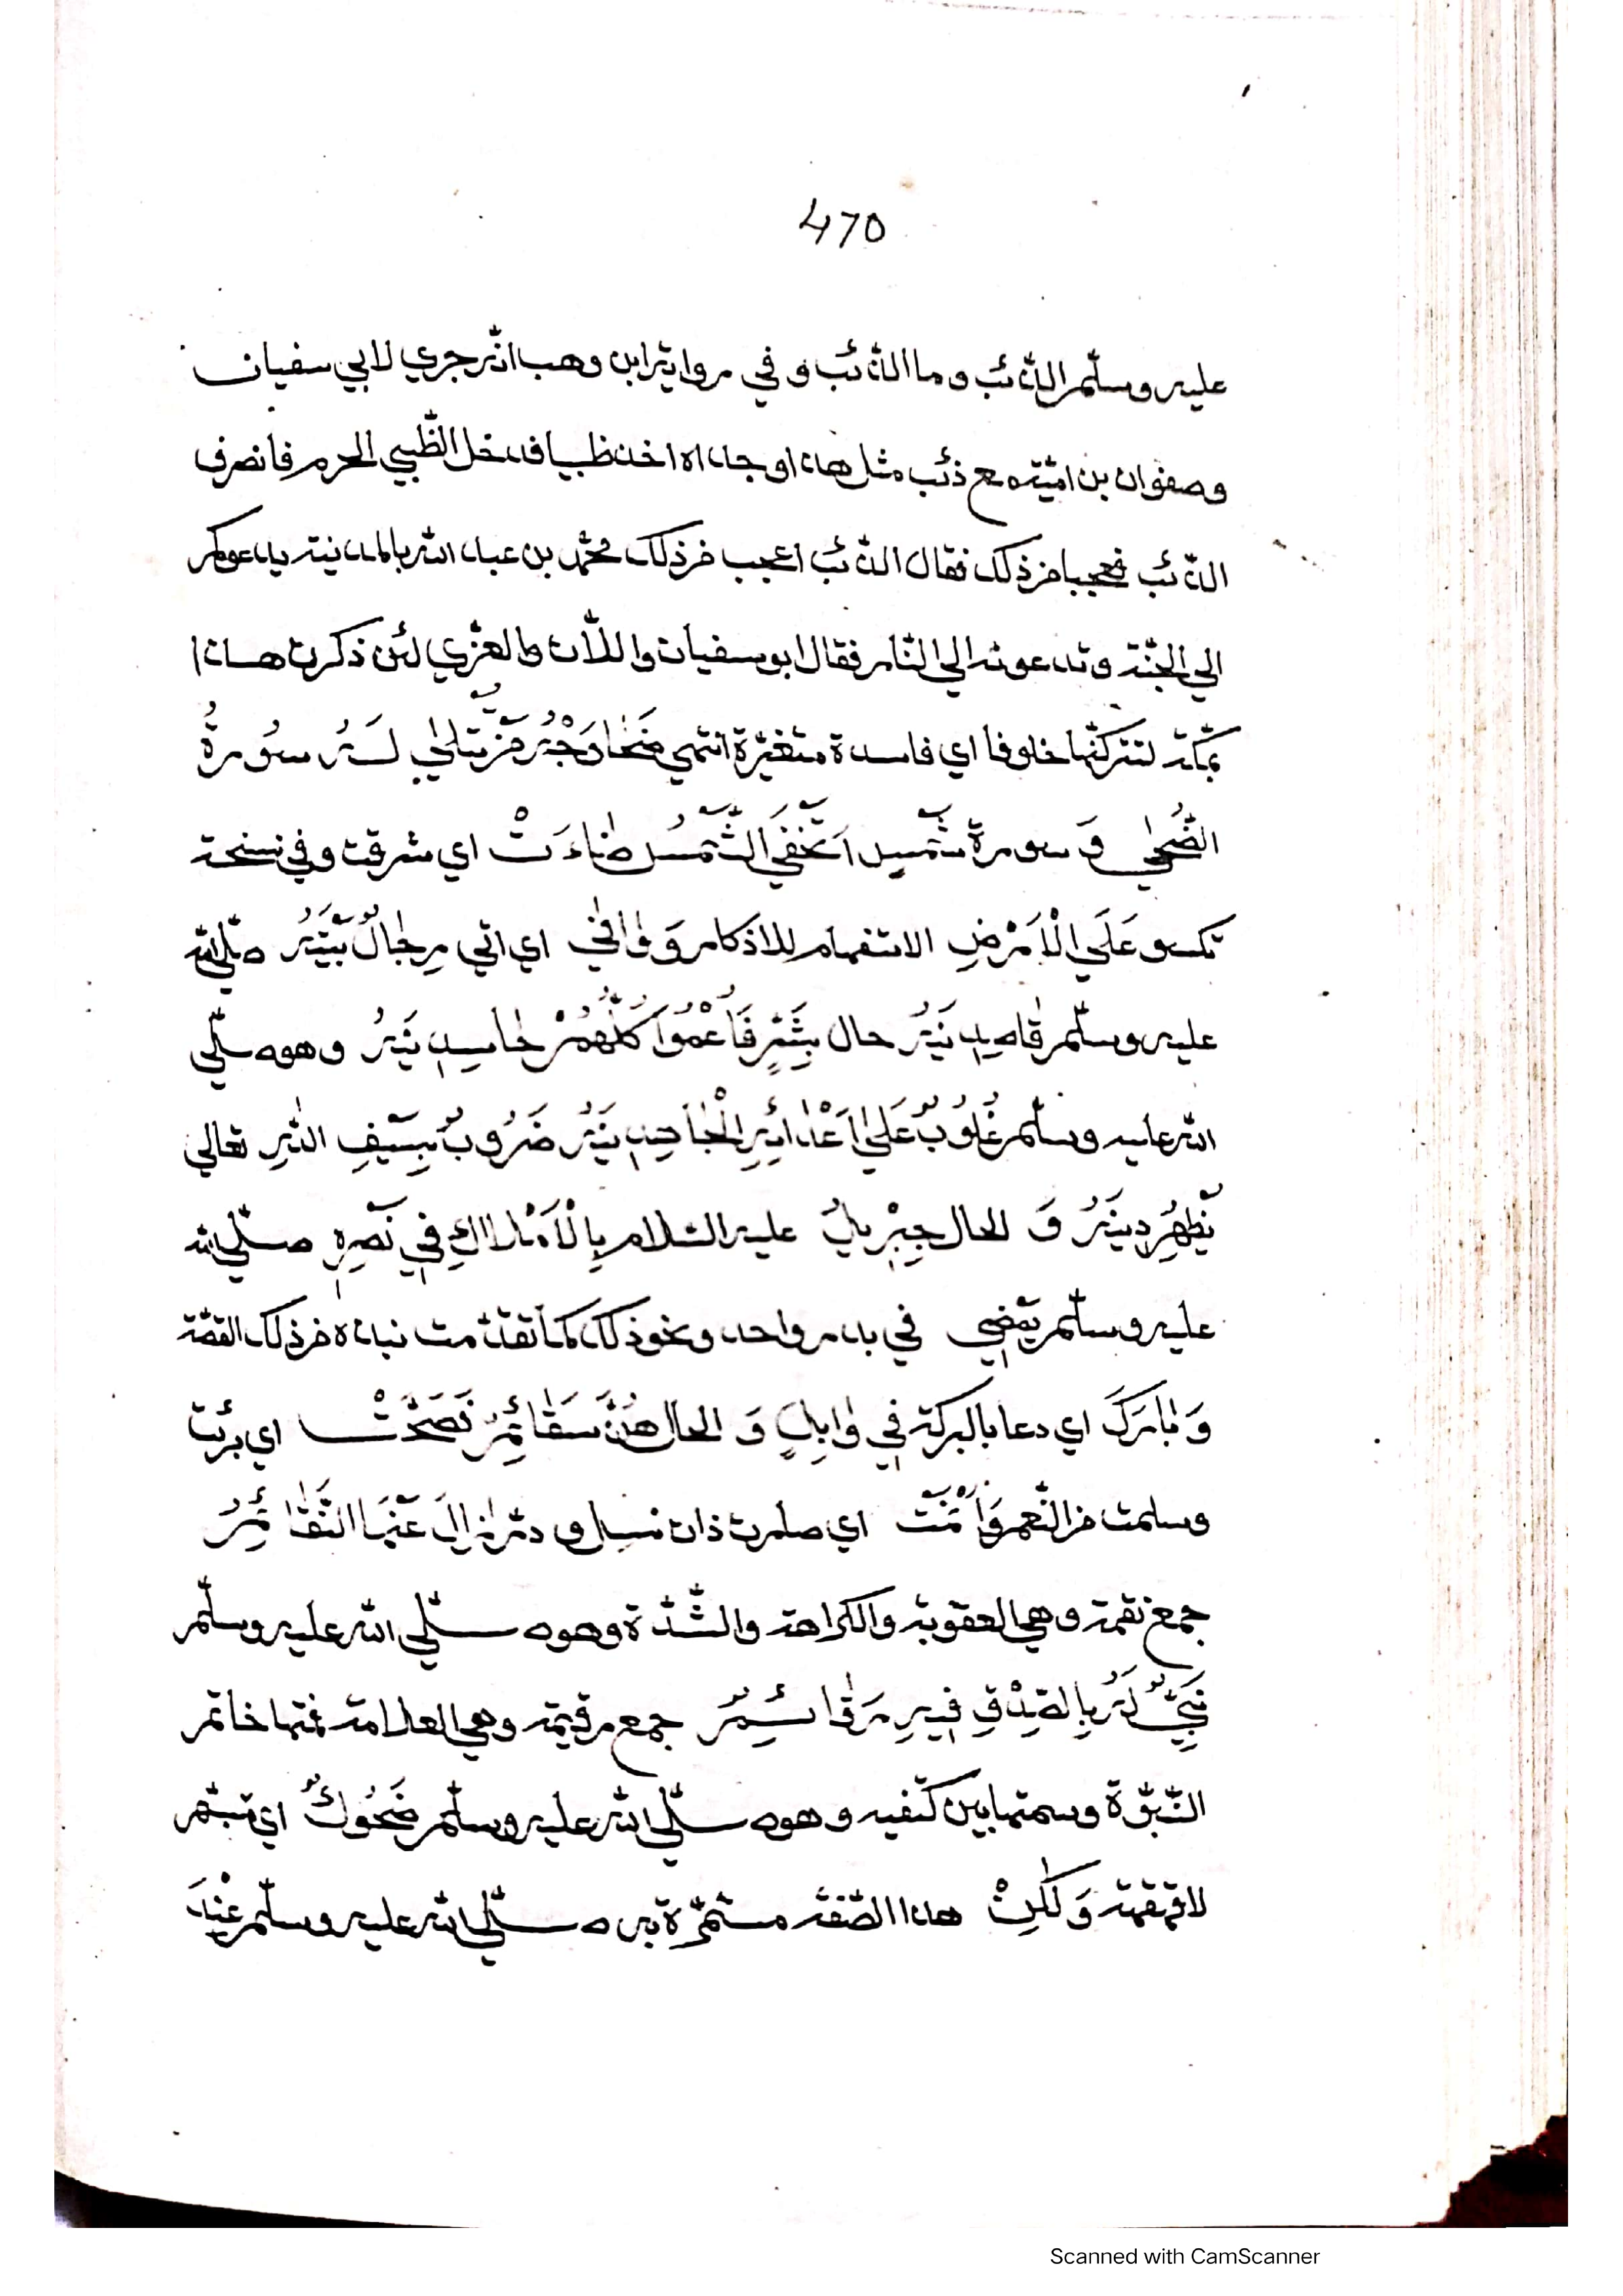 470
عليه وسلّم الذّئب وما الذّئب وفي رواية ابن وهب انّه جري لابي سفيان
وصفوان بن اميّة مع ذئب مثل هذا وجداه اخذ ظبيا فدخل الظّبي الحرم فانصرف
الذّئب فعجبا من ذلك فقال الذّئب اعجب من ذلك محمّد بن عبد الله بالمدينة يدعوكم
الي الجنّة وتدعونه الي النّار فقال ابوسفيان واللّات والعزّي لئن ذكرت هذا
بمكّة لتتركنّها خلوفا اي فاسدة متغيّرة انتهي ضُحًا وَجْهُه يُتلٰي لَهُ سُورةُ
الضُّحٰي وَ سورة شمسٍ اَتَخْفَي الشّمسُ ضٰاءَتْ اي شرقت وفي نسخة
تكسو عَلَي الْاَرْضِ الاستفهام للانكار وَ وٰافٰي اي اتي رِجٰالٌ بَيْتَهُ صلّي الله
عليه وسلّم قٰاصِدِينَهُ حال بِشَرٍّ فَاُعْمُوا كُلُّهُمْ حٰاسِدِينَهُ وهو صلّي
الله عليه وسلّم غَلُوبٌ عَلٰي اَعْدٰائِهِ الْجٰاحِدِينَهُ ضَرُوبٌ بِسَيْفِ اللهِ تعالي
يُظْهِرُ دِينَهُ وَ الحال جِبْرِيلُ عليه السّلام بِالْاَمْلَاكِ فِي نَصْرِهِ صلّي الله
عليه وسلّم يَمْضِي في بدر واحد ونحو ذلك كما تقدّمت نبذة من ذلك القصّة
وَ بٰارَكَ اي دعا بالبركة فِي وٰابِلٍ وَ الحال هُنَّ سَقٰائِمُ فَصَحَّتْ اي برئت
وسلمت من السّقم وَ اَنْمَتْ اي صارت ذات نسل ودرّ زٰالَ عَنْهَا النَّقٰائِمُ
جمع نقمة وهي العقوبة والكراهة والشّدّة وهو صلّي الله عليه وسلّم
نَبِيٌّ لَهُ بِالصِّدْقِ فِيهِ رَقٰائِمُ جمع رقيمة وهي العلامة فمنها خاتم
النّبوّة وسمتها بين كتفيه وهو صلّي الله عليه وسلّم ضَحُوكٌ اي تبسّم
لا قهقهة وَلٰكِنْ هذا الصّفة مستمرّة به صلّي الله عليه وسلّم عِنْدَ
Scanned with CamScanner